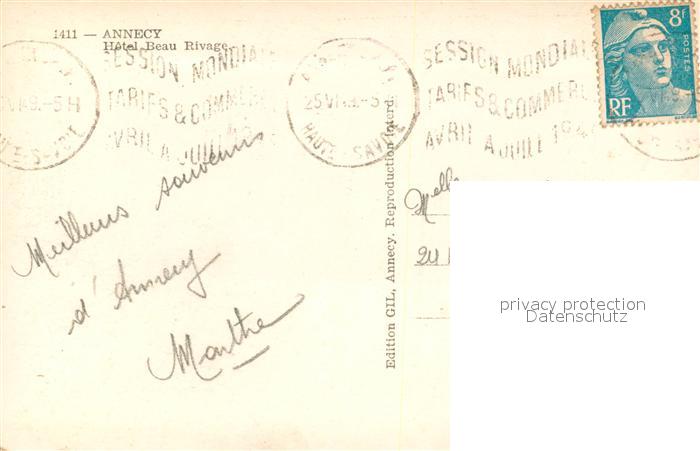 1411 — ANNECY
Hôtel Beau Rivage
SESSION MONDIALE
TARIFS & COMMERCE
AVRIL A JUILL 1949
25 VI 49 - 5 H
HAUTE SAVOIE
SESSION MONDIALE
TARIFS & COMMERCE
AVRIL A JUILL 194
8F
POSTES
RF
Meilleurs souvenirs
d'Annecy
Marthe
Edition GIL, Annecy. Reproduction Interd.
Melle
24
privacy protection
Datenschutz